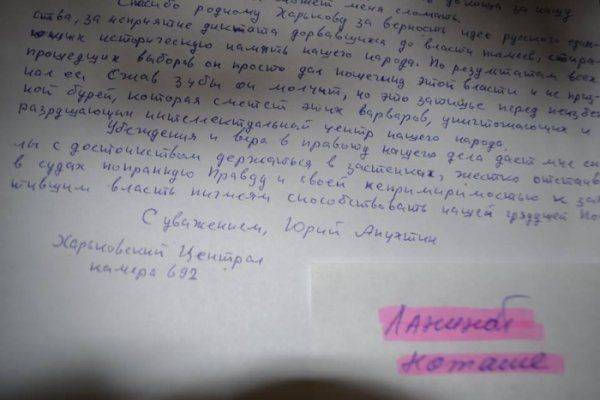 может меня сломать.
Спасибо родному Харькову за верность идее русского един-
ства, за неприятие диктата дорвавшихся до власти
ющих историческую память нашего народа. По результатам всех
прошедших выборов он просто дал пощечину этой власти и не приз-
нал ее. Сжав зубы он молчит, но это затишье перед неизбеж
ной бурей, которая сметет этих варваров, уничтожающих и
разрушающих интеллектуальный центр нашего народа.
Убеждения и вера в правоту нашего дела дает мне си
лы с достоинством держаться в застенках, жестко отстаив
в судах попранную Правду и своей непримиримостью к зах
тившим власть пигмеям способствовать нашей грядущей По
С уважением, Юрий Апухтин
Харьковский Централ
камера 692
Наташе